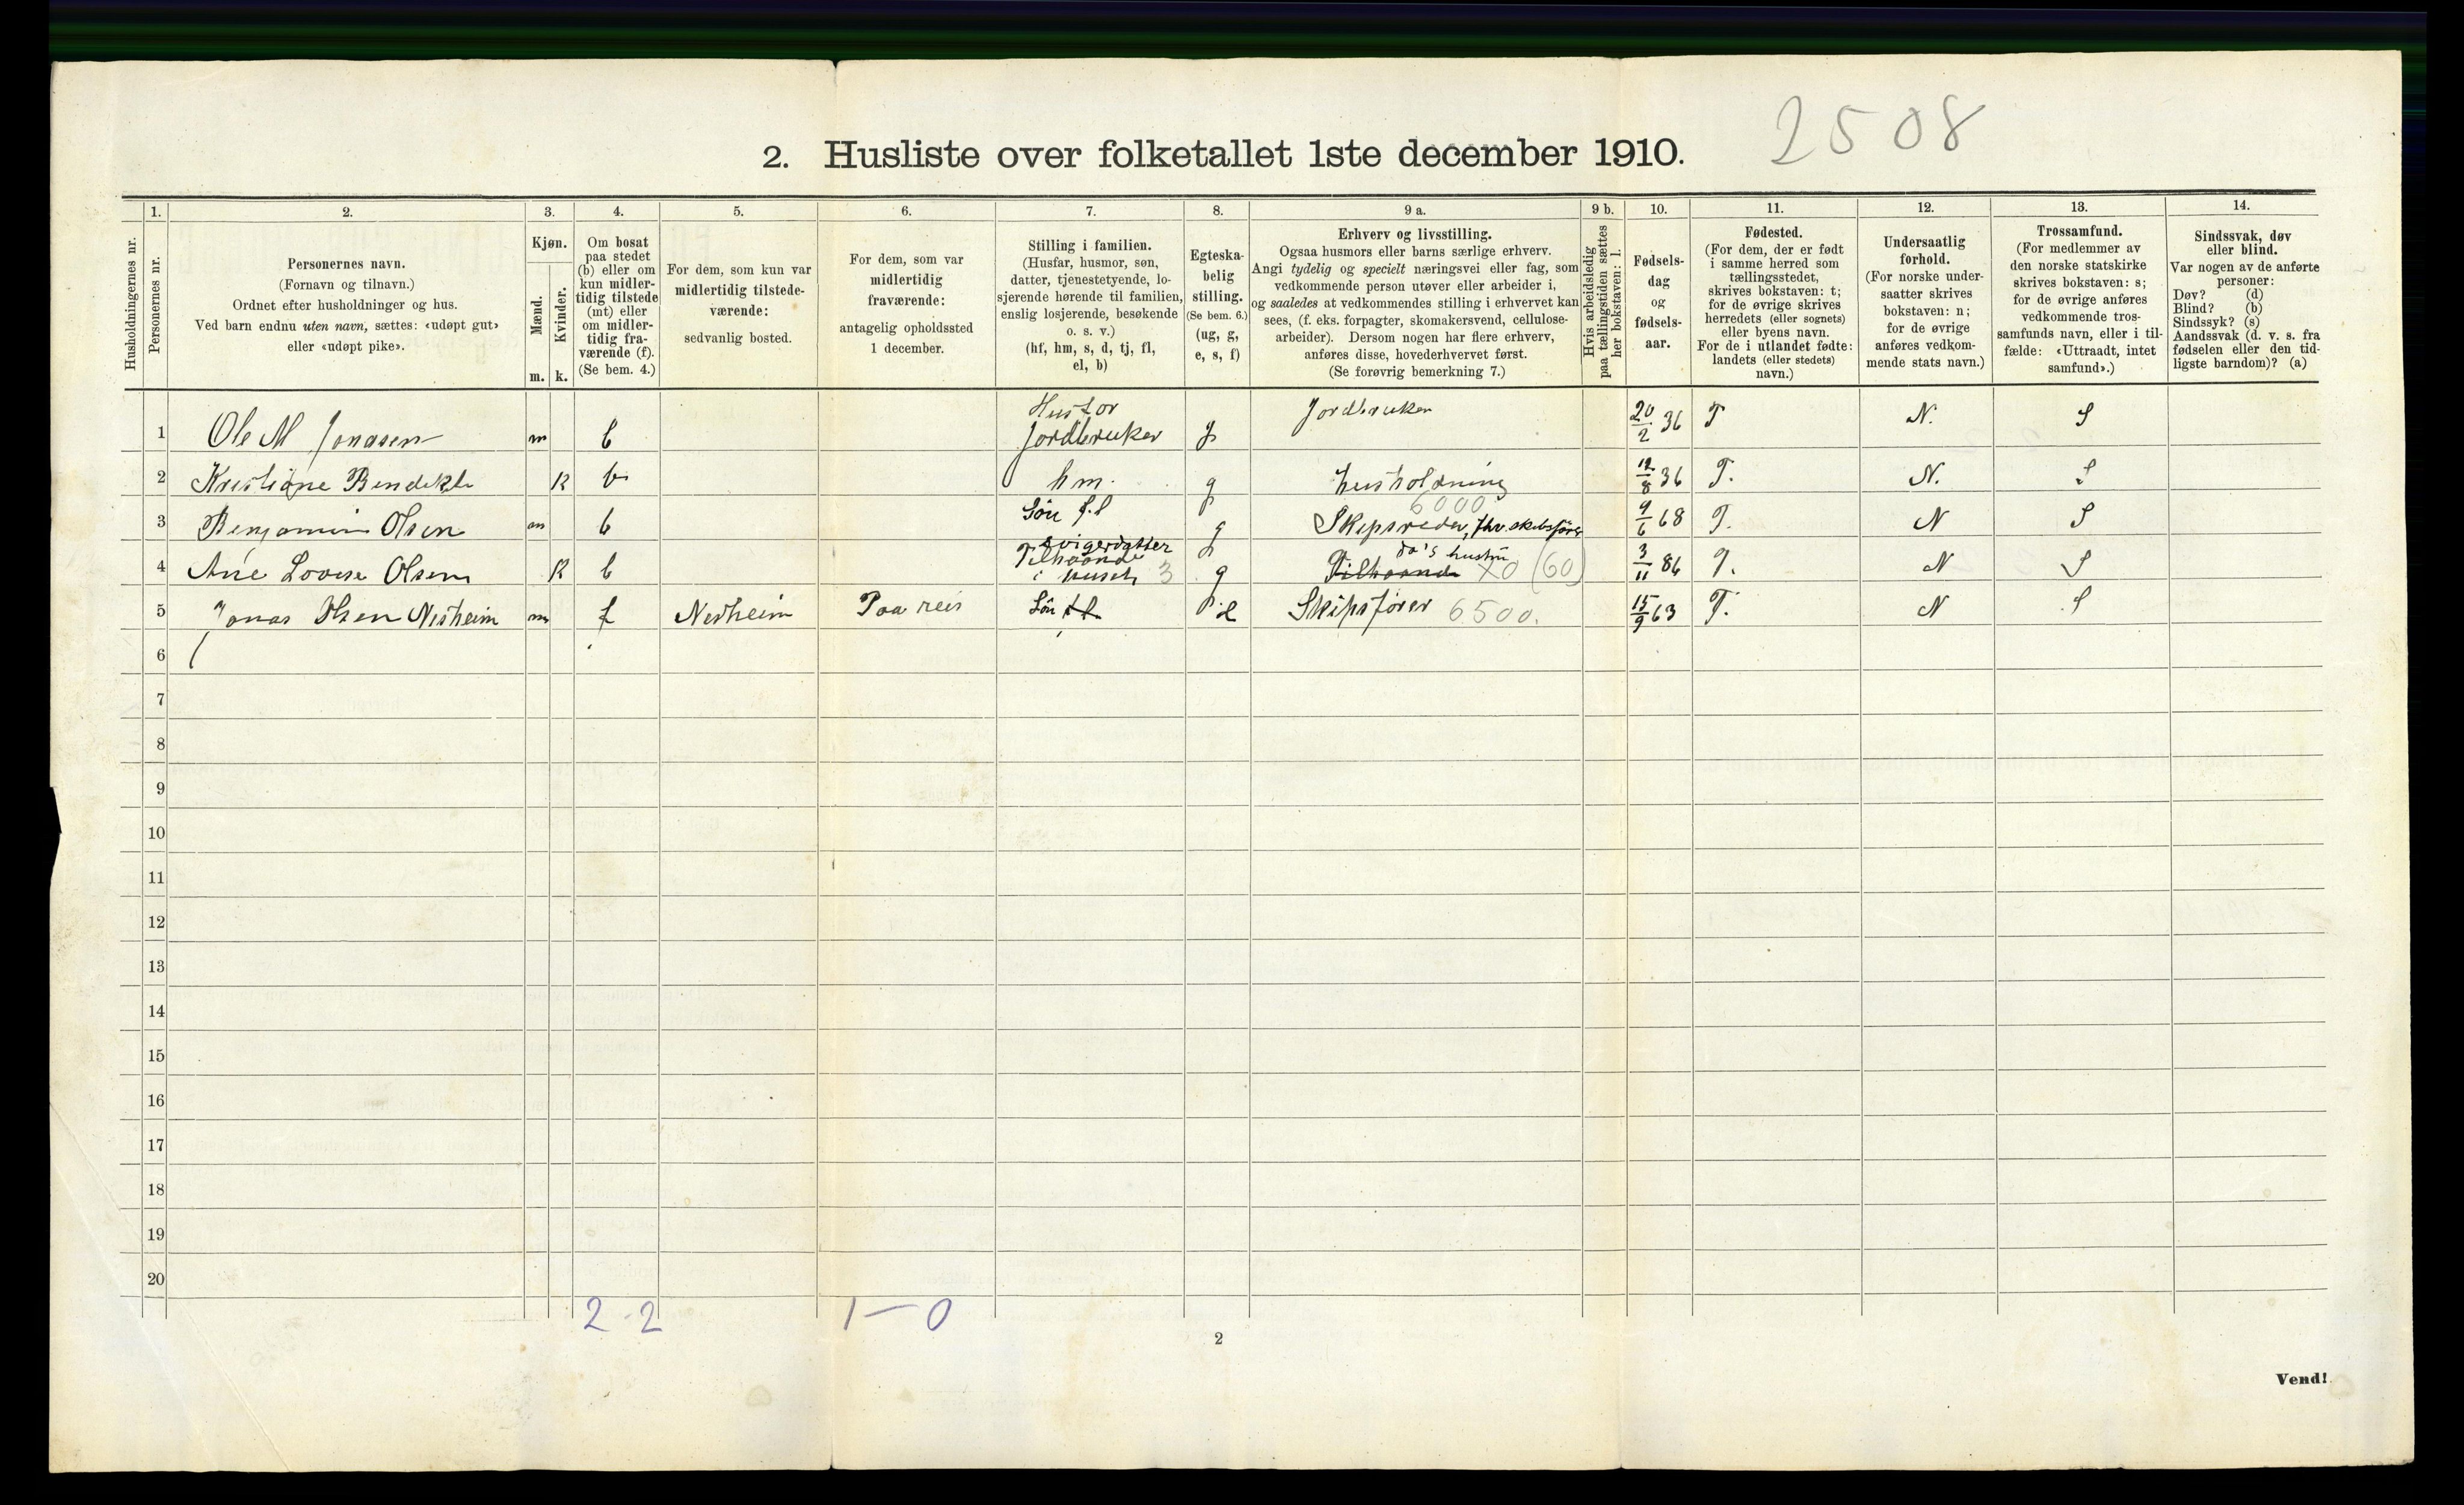 2508
2. Husliste over folketallet 1ste december 1910.
Husholdningernes nr.
1.
Personernes nr.
2.
Personernes navn.
(Fornavn og tilnavn.)
Ordnet efter husholdninger og hus.
Ved barn endnu uten navn, sættes: «udøpt gut»
eller «udøpt pike».
3.
Kjøn.
Mænd.
Kvinder.
m. k.
4.
Om bosat
paa stedet
(b) eller om
kun midler-
tidig tilstede
(mt) eller
om midler-
tidig fra-
værende (f).
(Se bem. 4.)
5.
For dem, som kun var
midlertidig tilstede-
værende:
sedvanlig bosted.
6.
For dem, som var
midlertidig
fraværende:
antagelig opholdssted
1 december.
7.
Stilling i familien.
(Husfar, husmor, søn,
datter, tjenestetyende, lo-
sjerende hørende til familien,
enslig losjerende, besøkende
o. s. v.)
(hf, hm, s, d, tj, fl,
el, b)
8.
Egteska-
belig
stilling.
(Se bem. 6.)
(ug, g,
e, s, f)
9 a.
Erhverv og livsstilling.
Ogsaa husmors eller barns særlige erhverv.
Angi tydelig og specielt næringsvei eller fag, som
vedkommende person utøver eller arbeider i,
og saaledes at vedkommendes stilling i erhvervet kan
sees, (f. eks. forpagter, skomakersvend, cellulose-
arbeider). Dersom nogen har flere erhverv,
anføres disse, hovederhvervet først.
(Se forøvrig bemerkning 7.)
9 b.
Hvis arbeidsledig
paa tællingstiden sættes
her bokstaven: l.
10.
Fødsels-
dag
og
fødsels-
aar.
11.
Fødested.
(For dem, der er født
i samme herred som
tællingsstedet,
skrives bokstaven: t;
for de øvrige skrives
herredets (eller sognets)
eller byens navn.
For de i utlandet fødte:
landets (eller stedets)
navn.)
12.
Undersaatlig
forhold.
(For norske under-
saatter skrives
bokstaven: n;
for de øvrige
anføres vedkom-
mende stats navn.)
13.
Trossamfund.
(For medlemmer av
den norske statskirke
skrives bokstaven: s;
for de øvrige anføres
vedkommende tros-
samfunds navn, eller i til-
fælde: «Uttraadt, intet
samfund».)
14.
Sindssvak, døv
eller blind.
Var nogen av de anførte
personer:
Døv? (d)
Blind? (b)
Sindssyk? (s)
Aandssvak (d. v. s. fra
fødselen eller den tid-
ligste barndom)? (a)
1 Ole M Jonasen m b Jordbruker g Jordbruker 20/2 36 T N. S
2 Kristiane Bendikte K b hm. g husholdning 12/8 36 T. N. S
3 Benjamin Olsen m b Søn fl g Skipsreder, fhv. skibsfører 6000 9/6 68 T. N S
4 Ane Lovise Olsen K b Svigerdatter Tilhaande i huset 3 g Tilhaande do's hustru X0 (60) 3/11 86 T. N S
5 Jonas Olsen Nesheim m f Nesheim Paa reis Søn fl e Skipsfører 6500. 15/9 63 T. N S
6
7
8
9
10
11
12
13
14
15
16
17
18
19
20
2-2 1-0
2
Vend!